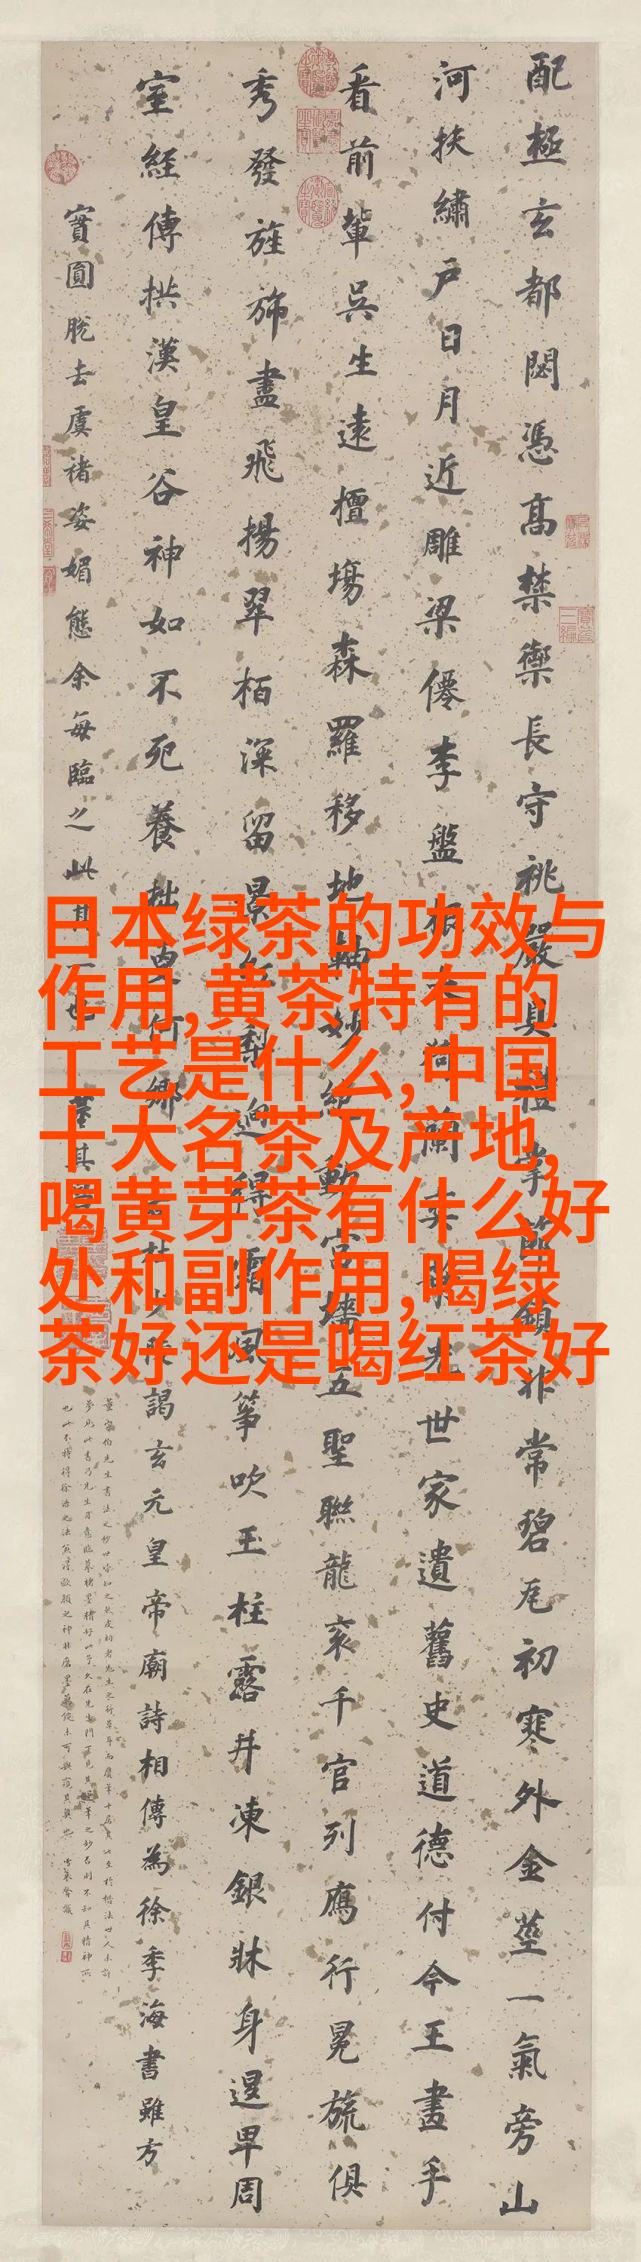 配極玄都閟憑高禁禦長守祧嚴具禮掌節鎮非常碧瓦初寒外金莖一氣旁山
河扶繡戶日月近雕梁僊李盤根大猗蘭奕葉光世家遺舊史道德付今王畫手
看前輩吳生遠擅場森羅移地軸妙絕動宮墻五聖聯龍衮千官列鴈行冕旒俱
秀發旌旆盡飛揚翠栢深留景紅梨迥得霜風箏吹玉柱露井凍銀牀身退卑周
室經傳拱漢皇谷神如不死養拙更何鄉右杜少陵謁玄元皇帝廟詩相傳為徐季海書雖方
實圓脫去虞褚姿媚態余每臨之此其一也董其昌
日本绿茶的功效与
作用,黄茶特有的
工艺是什么,中国
十大名茶及产地,
喝黄芽茶有什么好
处和副作用,喝绿
茶好还是喝红茶好